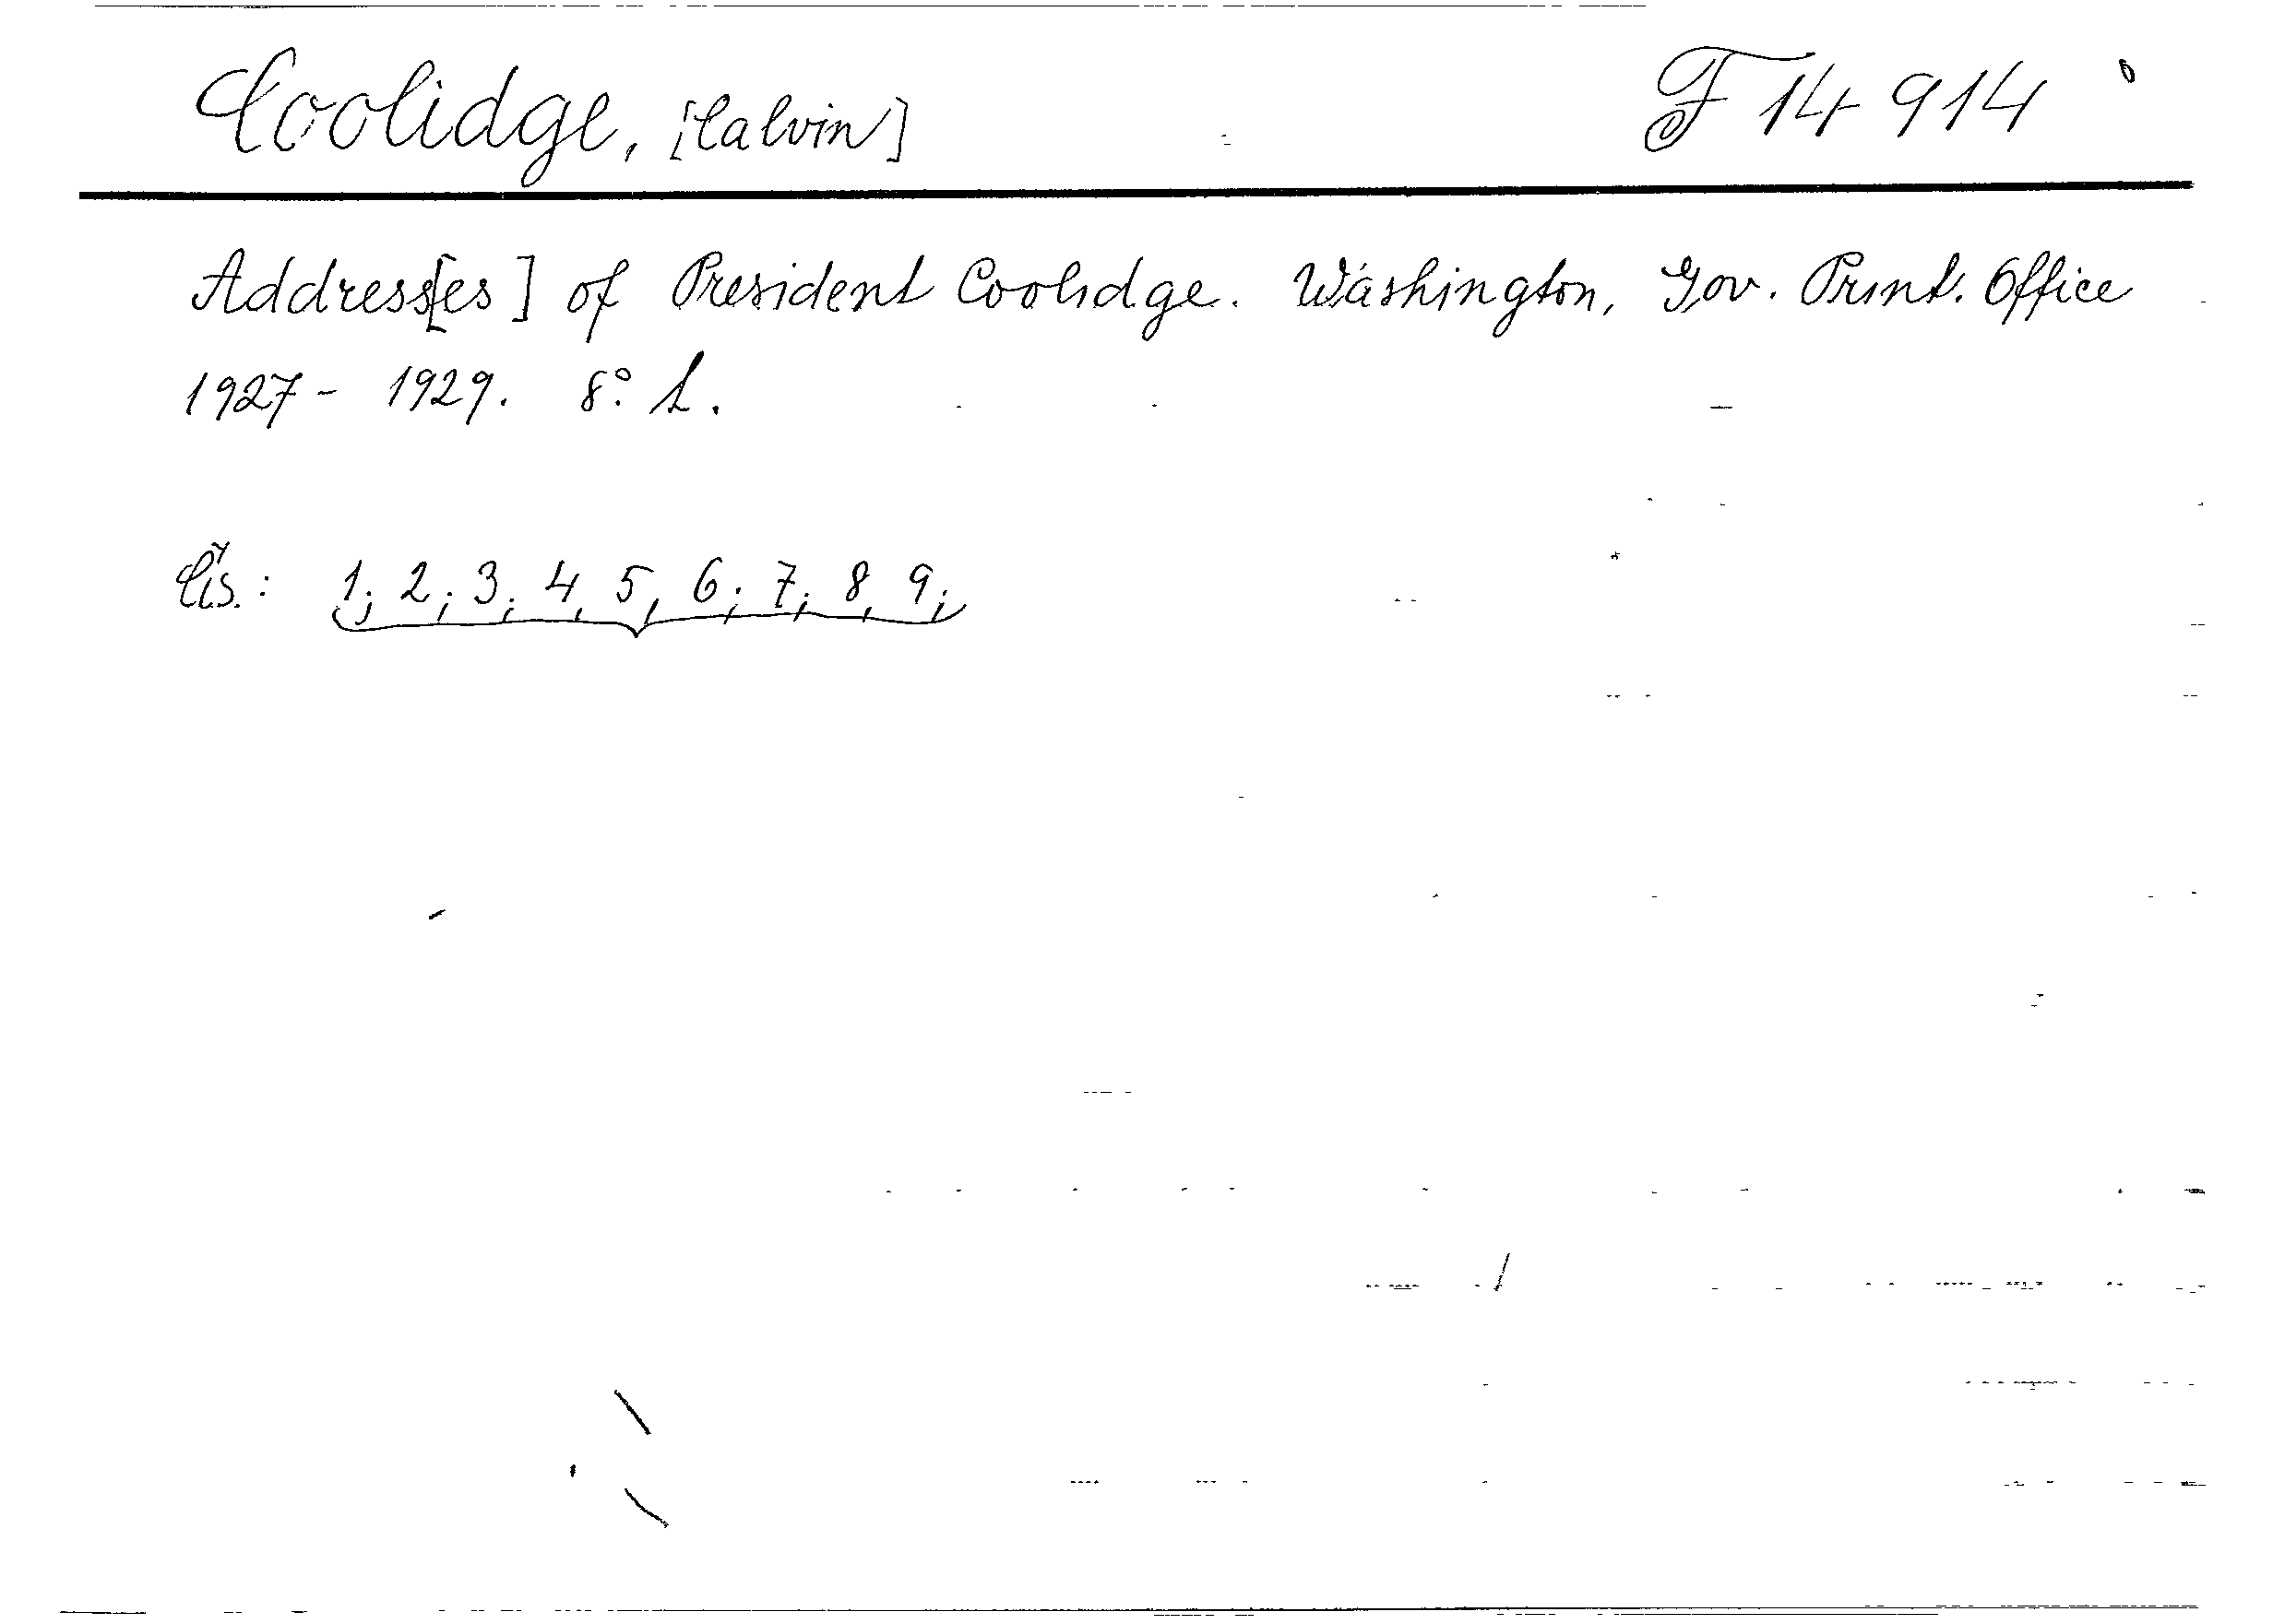 Coolidge, [Calvin] F 14 914
Address[es] of President Coolidge. Washington, Gov. Print. Office
1927 - 1929. 8° L.
Čís.: 1; 2; 3; 4, 5, 6; 7; 8, 9;